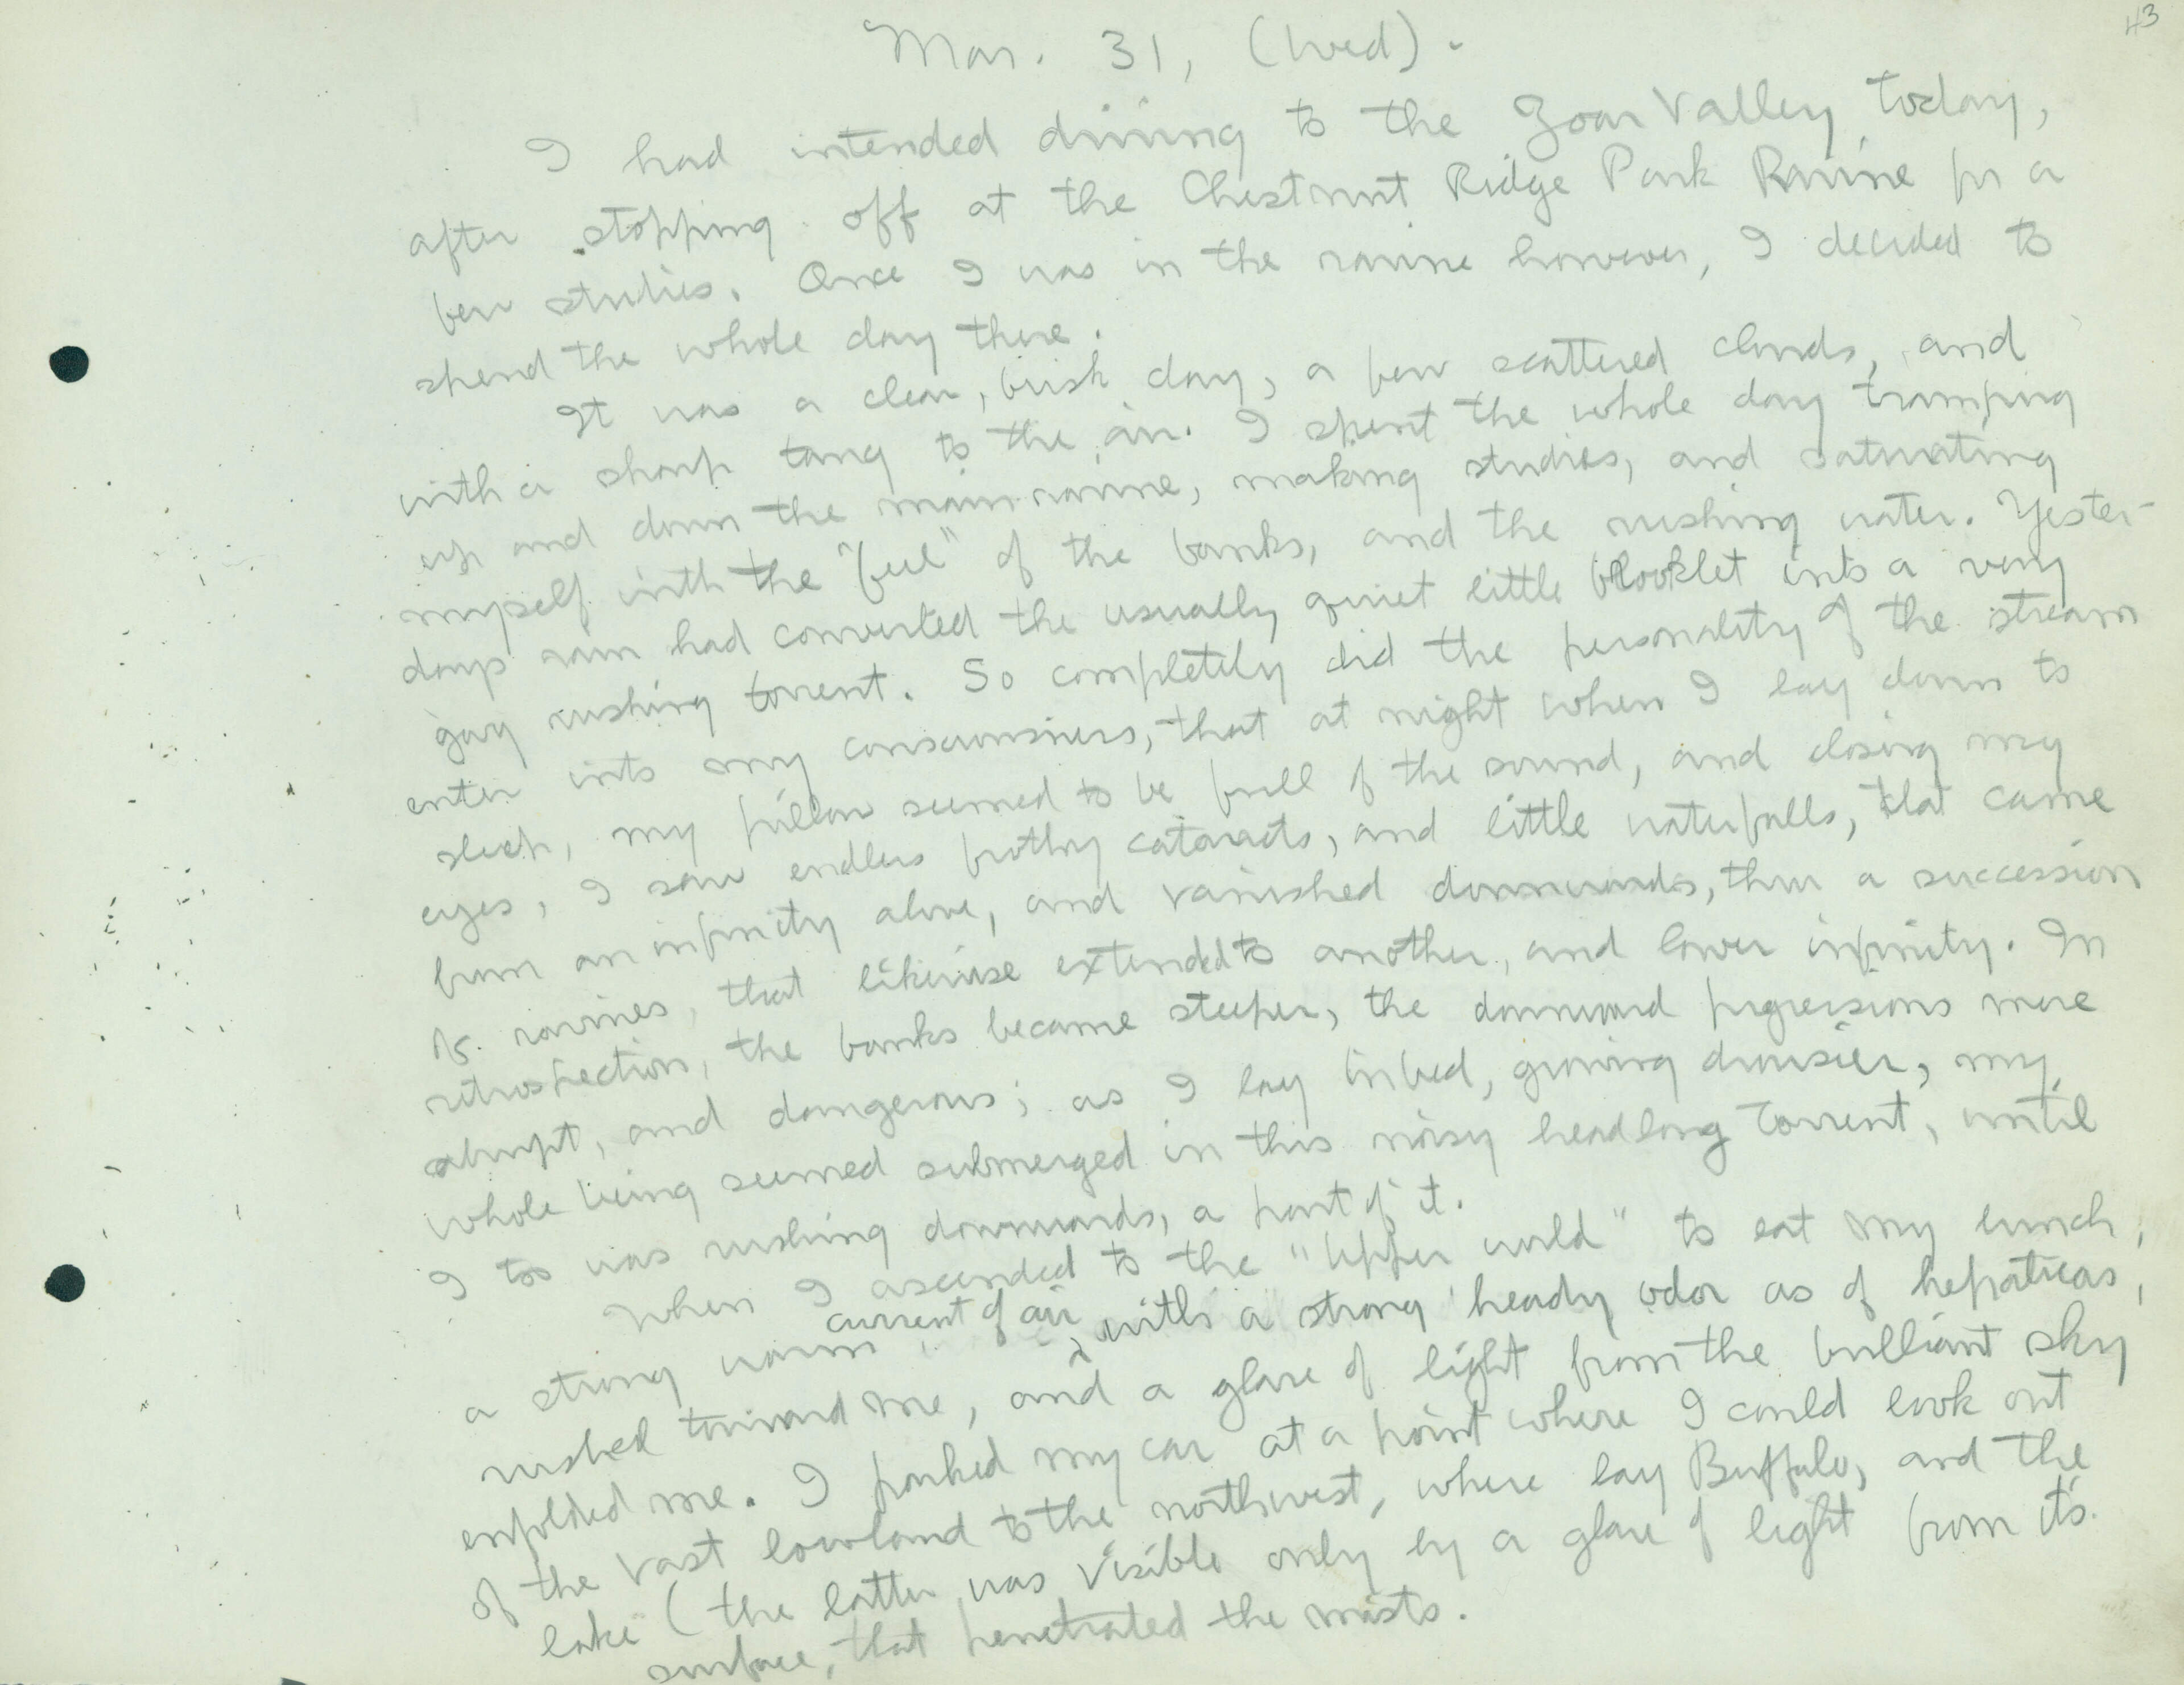 43
Mar. 31, (Wed).
I had intended driving to the Zoar Valley today,
after stopping off at the Chestnut Ridge Park Ravine for a
few studies. Once I was in the ravine however, I decided to
spend the whole day there.
It was a clear, brisk day, a few scattered clouds, and
with a sharp tang to the air. I spent the whole day tramping
up and down the main ravine, making studies, and saturating
myself with the "feel" of the banks, and the rushing water. Yester-
days rain had converted the usually quiet little brooklet into a very
gay rushing torrent. So completely did the personality of the stream
enter into my consciousness, that at night when I lay down to
sleep, my pillow seemed to be full of the sound, and closing my
eyes, I saw endless frothy cataracts, and little waterfalls, that came
from an infinity above, and vanished downwards, thru a succession
of ravines, that likewise extended to another, and lower infinity. In
retrospection, the banks became steeper, the downward progressions more
abrupt, and dangerous; as I lay in bed, growing drowsier, my
whole being seemed submerged in this noisy headlong torrent, until
I too was rushing downwards, a part of it.
When I ascended to the "Upper world" to eat my lunch,
a strong warm current of air, with a strong heady odor as of hepaticas,
rushed toward me, and a glare of light from the brilliant sky
enfolded me. I parked my car at a point where I could look out
of the vast lowland to the northwest, where lay Buffalo, and the
lake (the latter was visible only by a glare of light from it's
surface, that penetrated the mists.